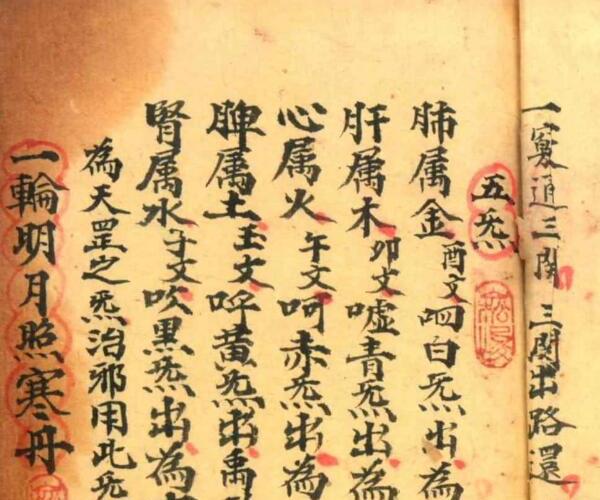 一竅通三関 三関出路還
五炁
肺属金酉文呬白炁出為
肝属木卯文嘘青炁出為
心属火午文呵赤炁出為
脾属土玉文呼黃炁出為
腎属水子文吹黒炁出為
為天罡之炁治邪用此炁
一輪明月照寒丹